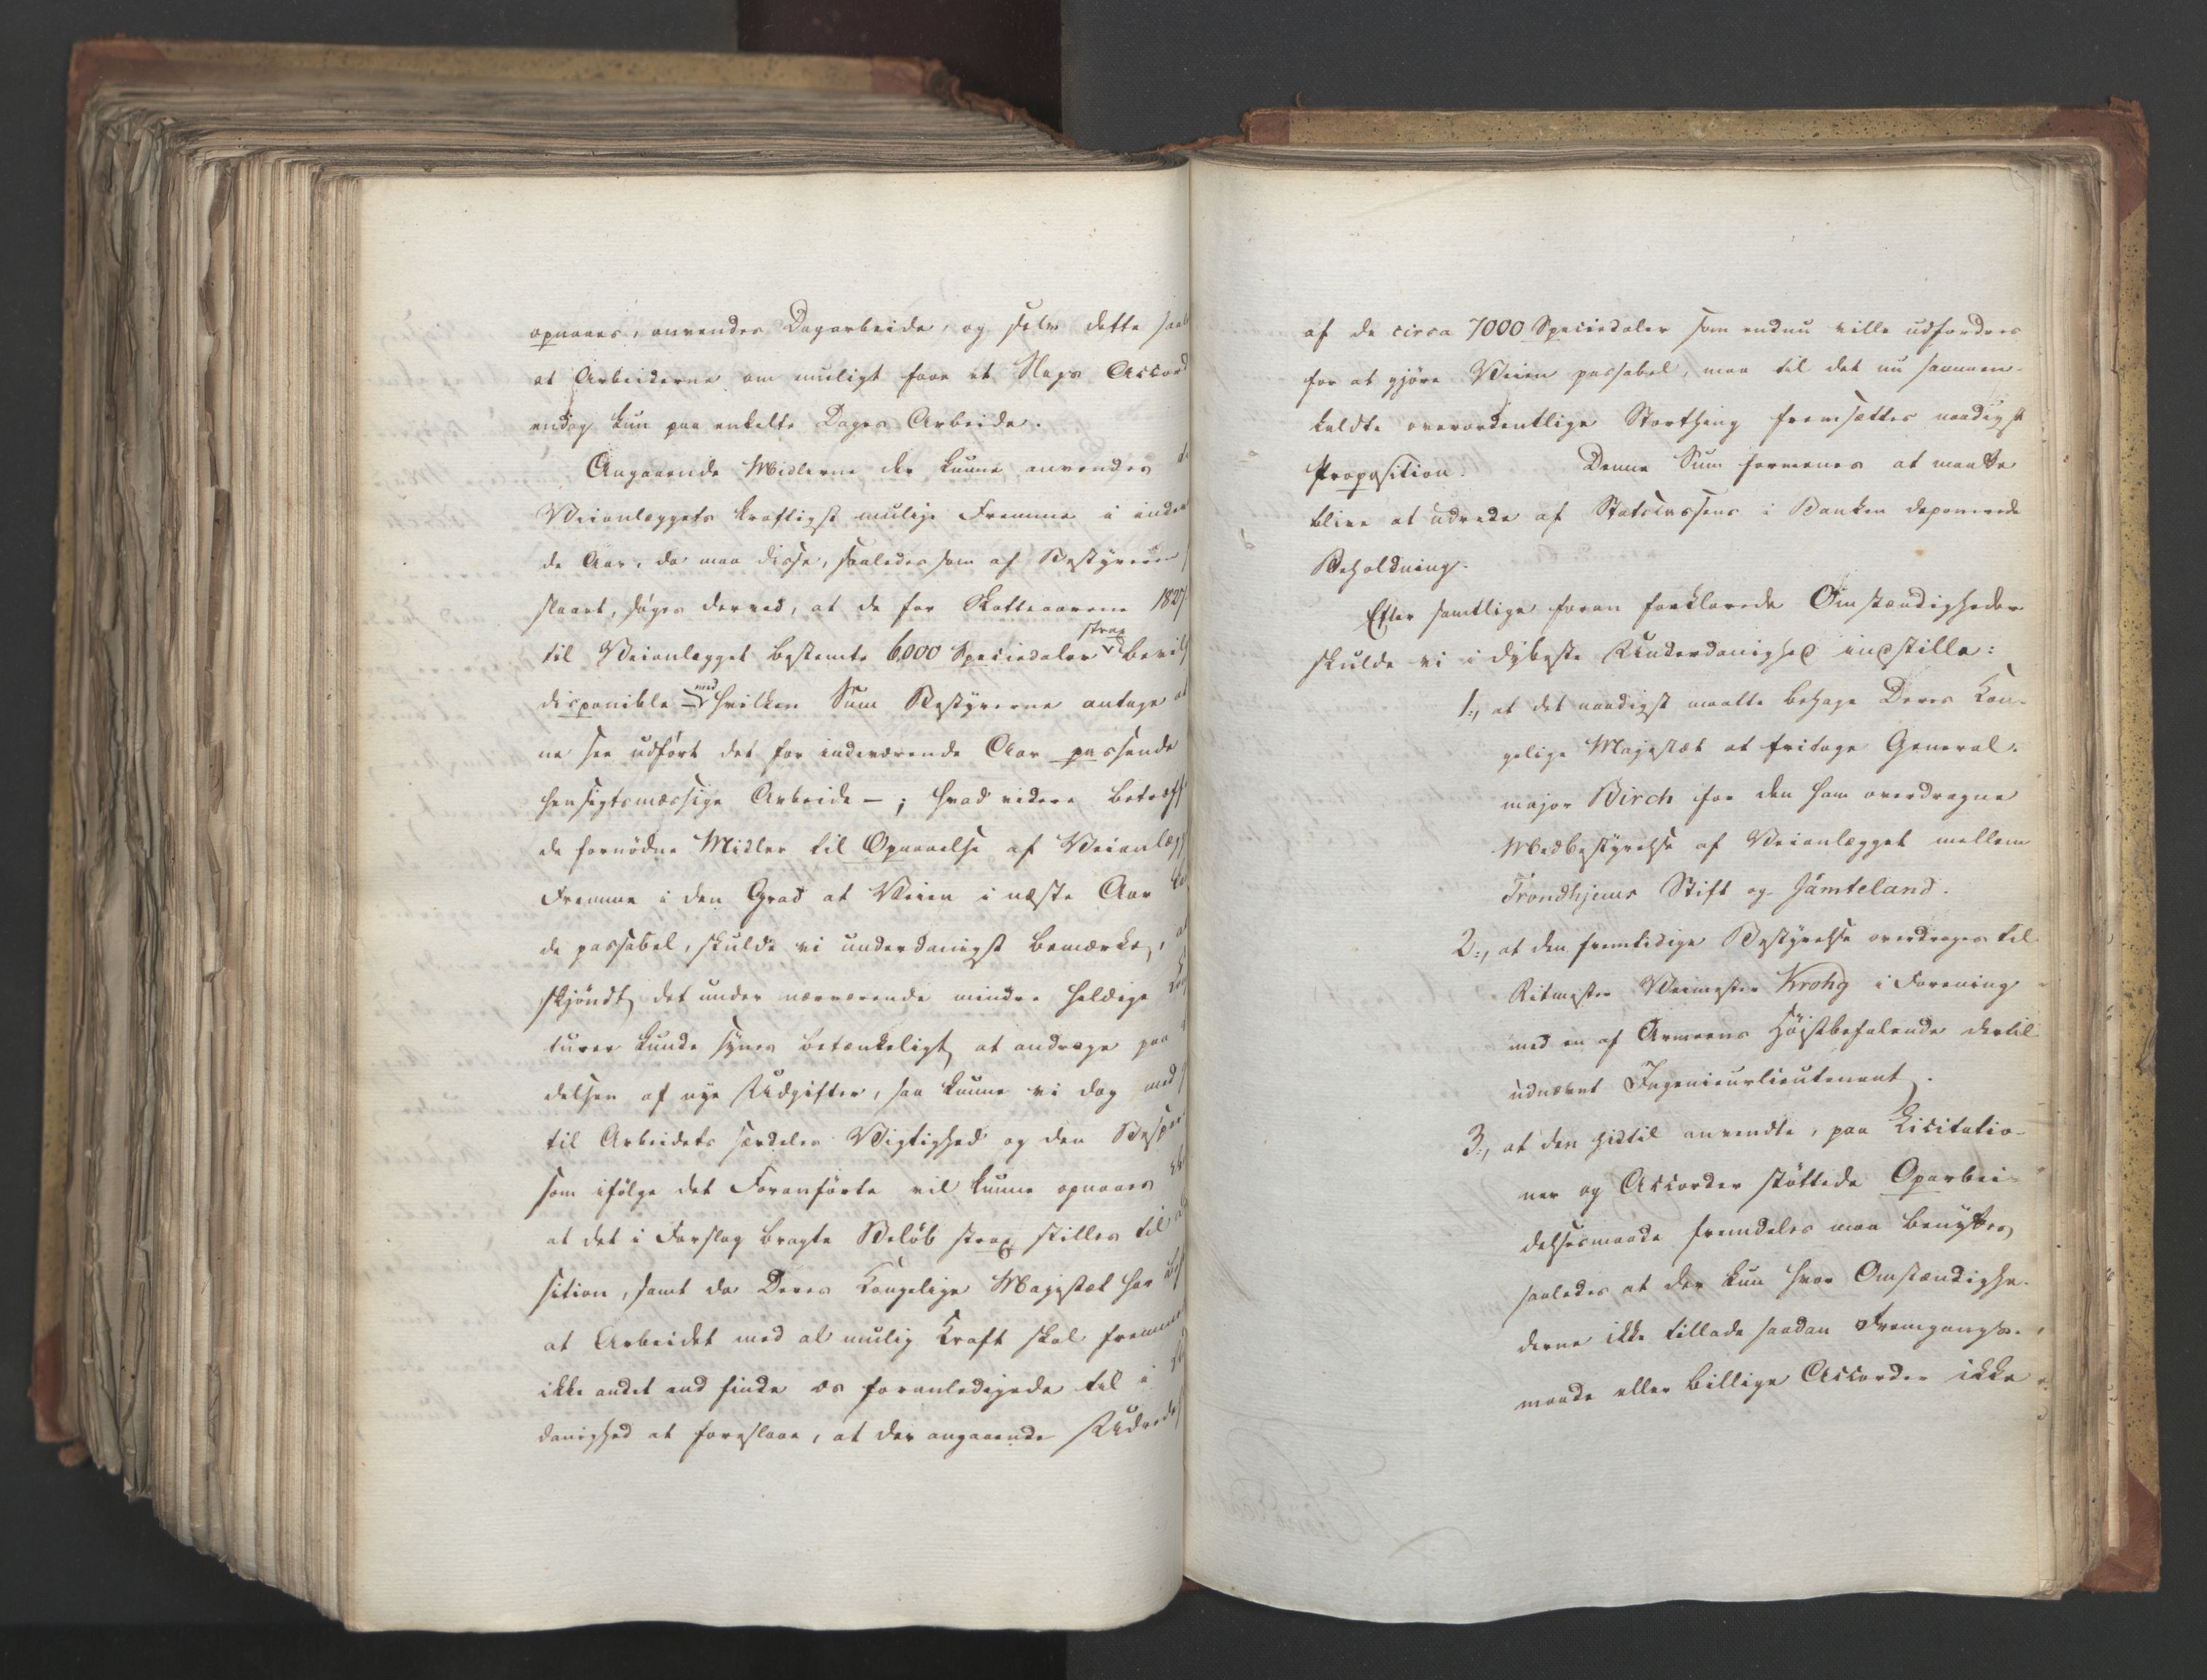 opnaaes, anvendes Dagarbeide, og selv dette saal
at Arbeiderne om muligt faae et Slags Accord
endog kun paa enkelte Dages Arbeide.
Angaaende Midlerne der kunne anvendes
Veianlæggets kraftigst mulige Fremme i inde
de Aar, da maa disse, saaledes som af Bestyreren
slaaet, søges derved, at de for Skatteaarene 1827
til Veianlægget bestemte 6000 Speciedaler strax bevil
disponible med hvilken Sum Bestyrerne antage at
ne see udført det for indeværende Aar passende
hensigtsmæssige Arbeide –; hvad videre betræff
de fornødne Midler til Opnaaelse af Veianlægg
Fremme i den Grad at Veien i næste Aar
de passabel, skulde vi underdanigst bemærke, at
skjøndt det under nærværende mindre heldige
turer kunde synes betænkeligt at andrage paa
delsen af nye Udgifter, saa kunne vi dog med
til Arbeidets særdeles Vigtighed og den Bespar
som ifølge det Foranførte vil kunne opnaaes
at det i Forslag bragte Beløb strax stilles til
sition, samt da Deres Kongelige Majestæt har
at Arbeidet med al mulig Kraft skal fremme
ikke andet end finde os foranledigede til i
danighed at foreslaae, at der angaaende Udrede
af de circa 7000 Speciedaler som endnu ville udfordres
for at gjøre Veien passabel, maa til det nu sammen-
kaldte overordentlige Storthing fremsættes naadigst
Proposition. Denne Sum formenes at maatte
blive at udrede af Statscassens i Banken deponerede
Beholdning.
Efter samtlige foran forklarede Omstændigheder
skulde vi i dybeste Underdanighed indstille:
1:, at det naadigst maatte behage Deres Kon-
gelige Majestæt at fritage General-
major Birch for den ham overdragne
Medbestyrelse af Veianlægget mellem
Trondhjems Stift og Jämteland.
2:, at den fremtidige Bestyrelse overdrages til
Ritmester Veimester Krohg i Forening
med en af Armeens Høistbefalende dertil
udnævnt Ingenieurlieutenant.
3:, at den hidtil anvendte, paa Licitatio-
ner og Accorder støttede Oparbei-
delsesmaade fremdeles maa benyttes,
saaledes at der kun hvor Omstændighe-
derne ikke tillade saadan Fremgangs-
maade eller billige Accorder ikke